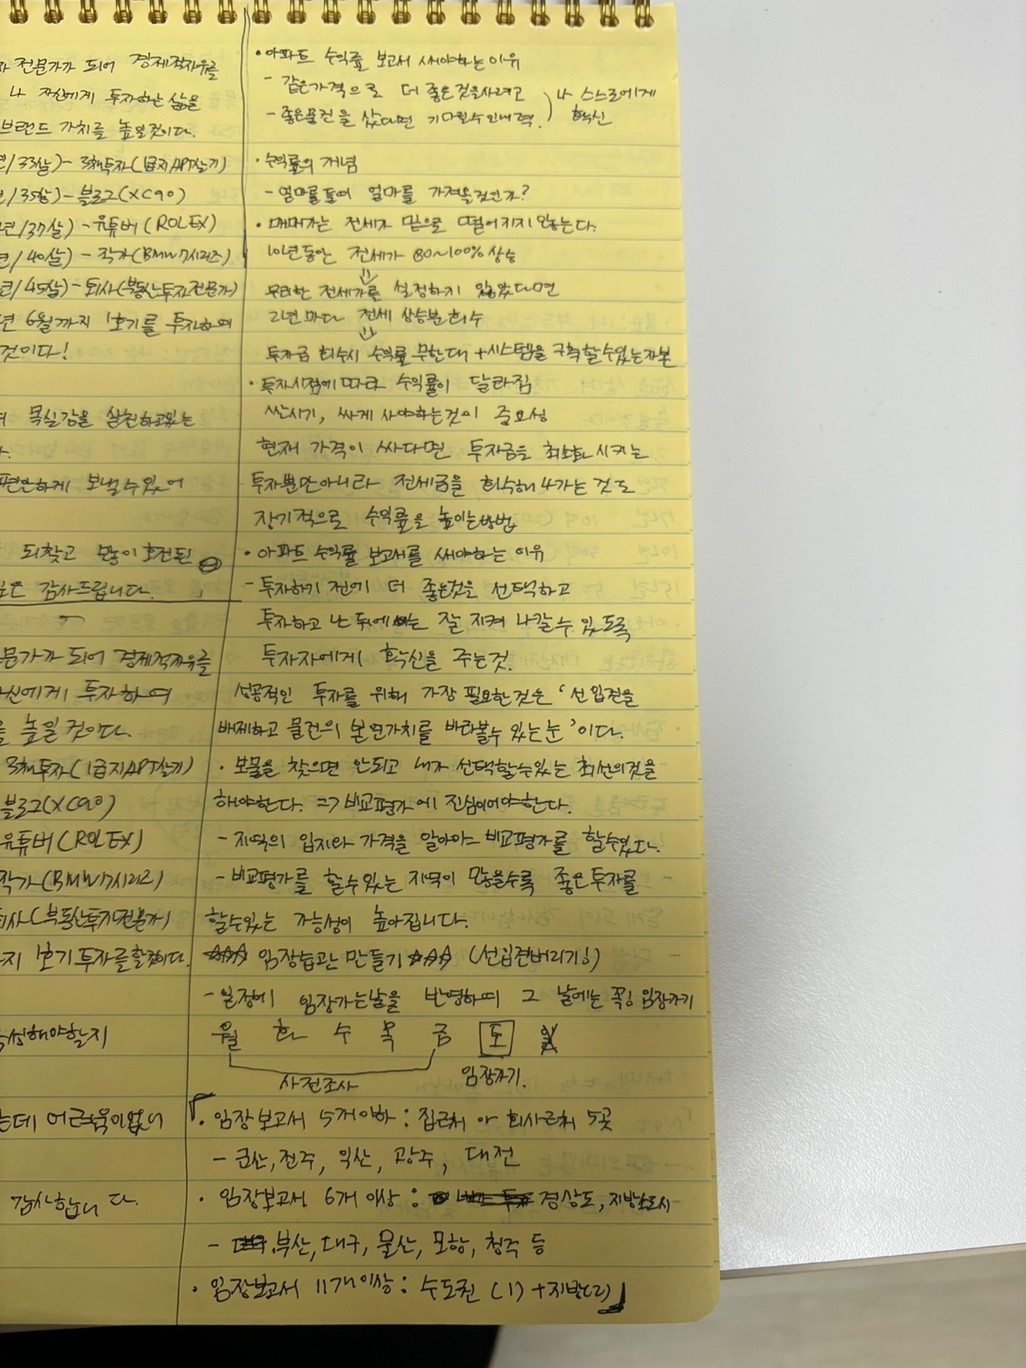 전문가가 되어 경제적자유를
나 자신에게 투자하는 삶을
브랜드 가치를 높일것이다.
/33살)- 3채투자(1급지APT살기)
/35살)-볼보(XC90)
/37살)-유튜버(ROLEX)
/40살)-작가(BMW7시리즈)
/45살)-퇴사(부동산투자전문가)
년 6월까지 1호기를 투자하여
것이다!
목실감을 실천하고있는
편안하게 보낼수있어
되찾고 많이 호전된
감사드립니다.
문가가 되어 경제적자유를
신에게 투자하며
높일것이다.
3채투자(1급지APT살기)
볼보(XC90)
유튜버(ROLEX)
작가(BMW7시리즈)
퇴사(부동산투자전문가)
지 1호기투자를할것이다.
성해야할지
는데 어려움이없으니
감사합니다.
• 아파트 수익률 보고서 써야하는이유
- 같은가격으로 더 좋은것을사려고
- 좋은물건을 샀다면 기다릴수인내력.
나 스스로에게
확신
• 수익률의 개념
- 얼마를들여 얼마를 가져올것인가?
• 매매가는 전세가 밑으로 떨어지지 않는다.
10년동안 전세가 80~100% 상승
⇓
무리한 전세가를 설정하지 않았다면
2년마다 전세 상승분회수
⇓
투자금 회수시 수익률 무한대 +시스템을 구축할수있는자본
• 투자시점에따라 수익률이 달라짐
싼시기, 싸게 사야하는것이 중요성
현재 가격이 싸다면 투자금을 최소화 시키는
투자뿐만아니라 전세금을 회수해 나가는 것도
장기적으로 수익률을 높이는방법
• 아파트 수익률 보고서를 써야하는 이유
- 투자하기 전에 더 좋은것을 선택하고
투자하고 난 뒤에는 잘 지켜 나갈수 있도록
투자자에게 확신을 주는것.
성공적인 투자를 위해 가장 필요한것은 '선입견을
배제하고 물건의 본연가치를 바라볼수 있는눈'이다.
• 보물을 찾으면 안되고 내가 선택할수있는 최선의것을
해야한다. => 비교평가에 진심이어야한다.
- 지역의 입지와 가격을 알아야 비교평가를 할수있다.
- 비교평가를 할수있는 지역이 많을수록 좋은투자를
할수있는 가능성이 높아집니다.
☆☆☆ 임장습관 만들기 ☆☆☆ (선입견버리기!)
- 일정에 임장가는날을 반영하며 그 날에는 꼭! 임장가기
월 화 수 목 금 토 일
사전조사
임장가기.
• 임장보고서 5개이하 : 집근처 or 회사근처 5곳
- 군산, 전주, 익산, 광주, 대전
• 임장보고서 6개 이상 : 경상도, 지방소도시
- 부산, 대구, 울산, 포항, 청주 등
• 임장보고서 11개이상 : 수도권 (1) +지방(2)